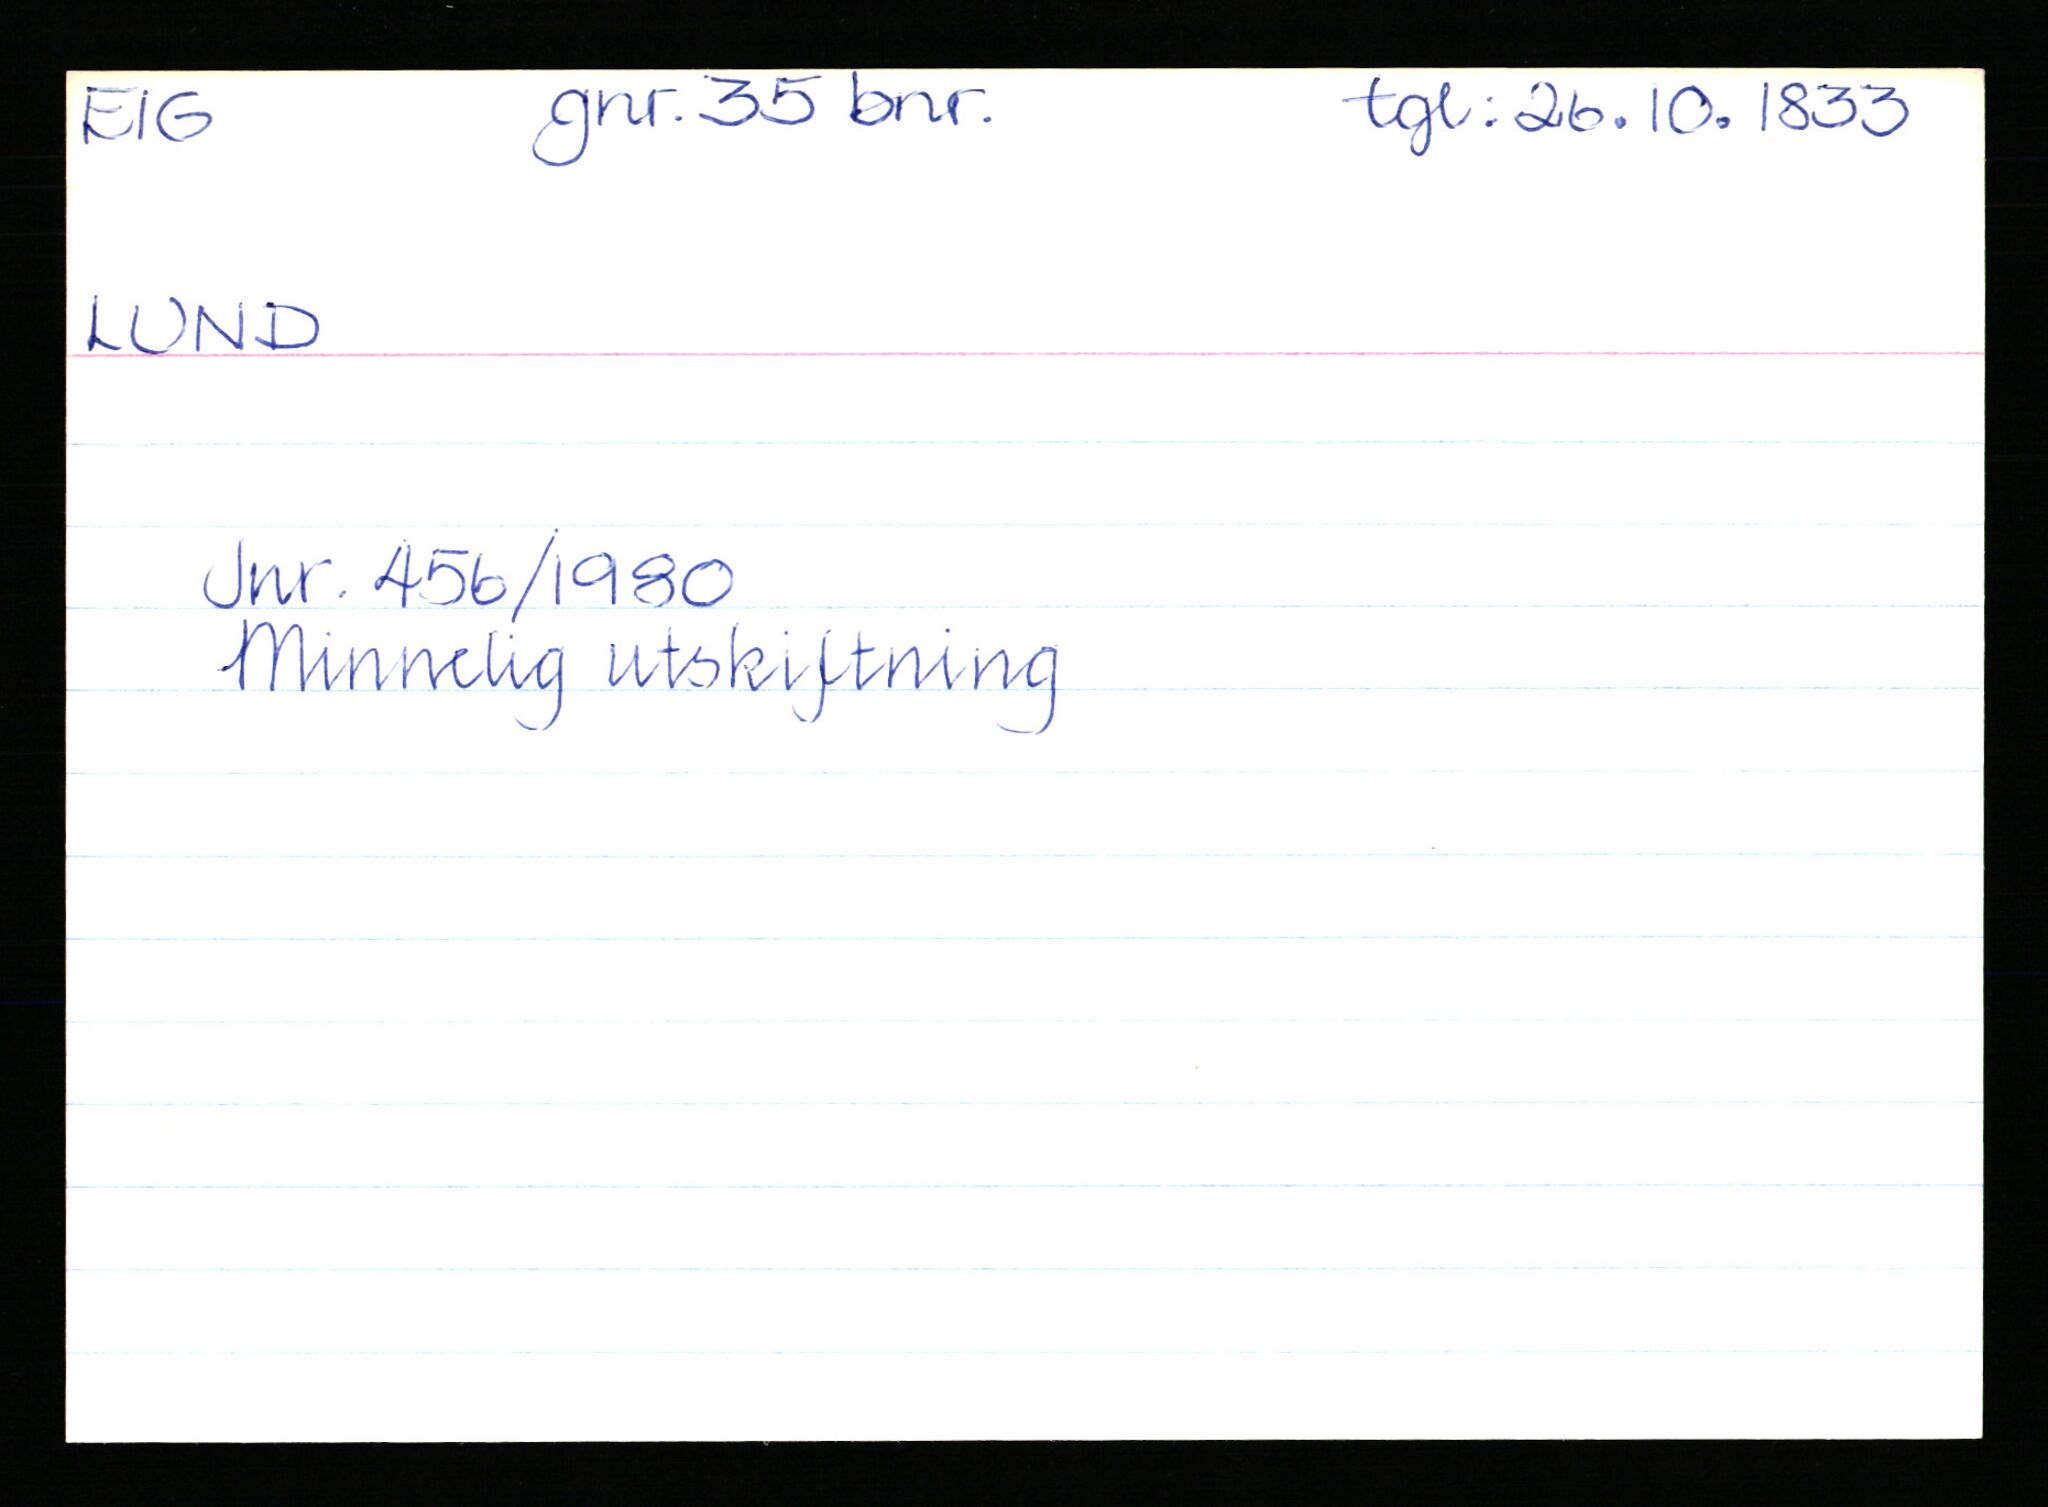 EIG gnr. 35 bnr. tgl: 26.10.1833
LUND
Jnr. 456/1980
Minnelig utskiftning